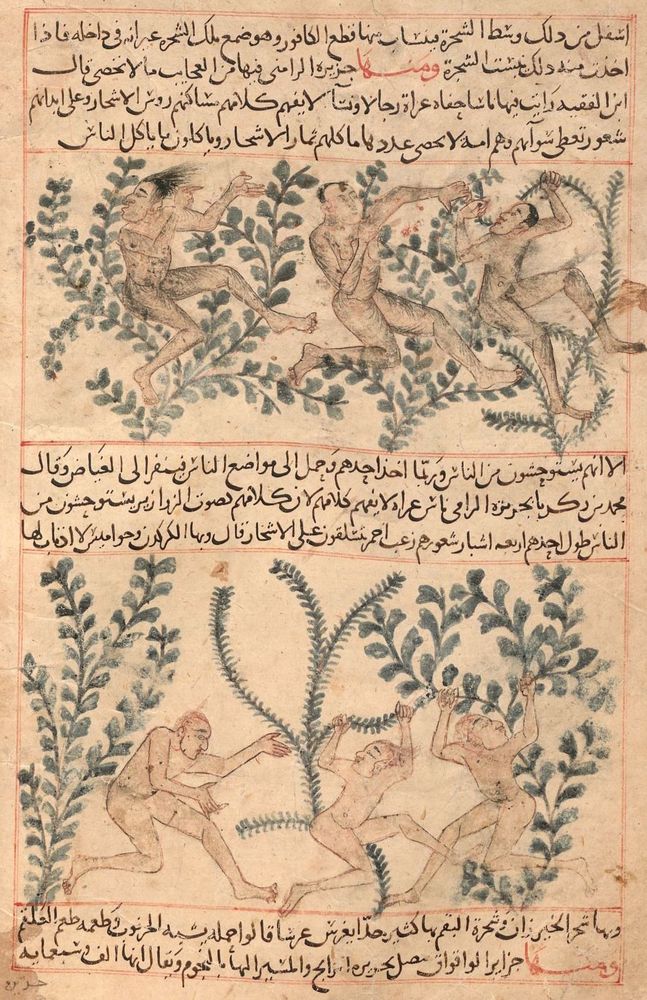 اسفل من ذلك وسط الشجرة فينساب منها قطع الكافور وهو صمغ تلك الشجرة غير انه في داخله فاذا
اخذت منه ذلك يبست الشجرة ومنها جزيره الرامني فيها من العجايب ما لا يحصى قال
ابن الفقيه رايت فيها ناسا حفاه عراة رجالا ونسآ لا يفهم كلامهم مساكنهم روس الاشجار وعلى ابدانهم
شعور تغطي سوآتهم وهم امه لا يحصى عددها ماكلهم ثمار الاشجار وياكلون ما ياكل الناس
الا انهم يستوحشون من الناس وربما اخذ احدهم وحمل الى مواضع الناس فينفر الى الغياض وقال
محمد بن زكريا بجزيرة الرامي ناس عراه لا يفهم كلامهم لان كلامهم كصوت الزرازير يستوحشون من
الناس طول احدهم اربعه اشبار شعورهم زغب احمر يتسلقون على الاشجار قال وبها الكركدن وجواميس لا اذناب لها
وبها شجر الخيزران وشجرة البقم بها كثير جدا يغرس غرسا قالوا حمله يشبه الخرنوب وطعمه طعم العلقم
ومنها جزاير الواقواق متصل بجزيره الزابج والمسير اليها بالنجوم ويقال انها الف وسبعمايه